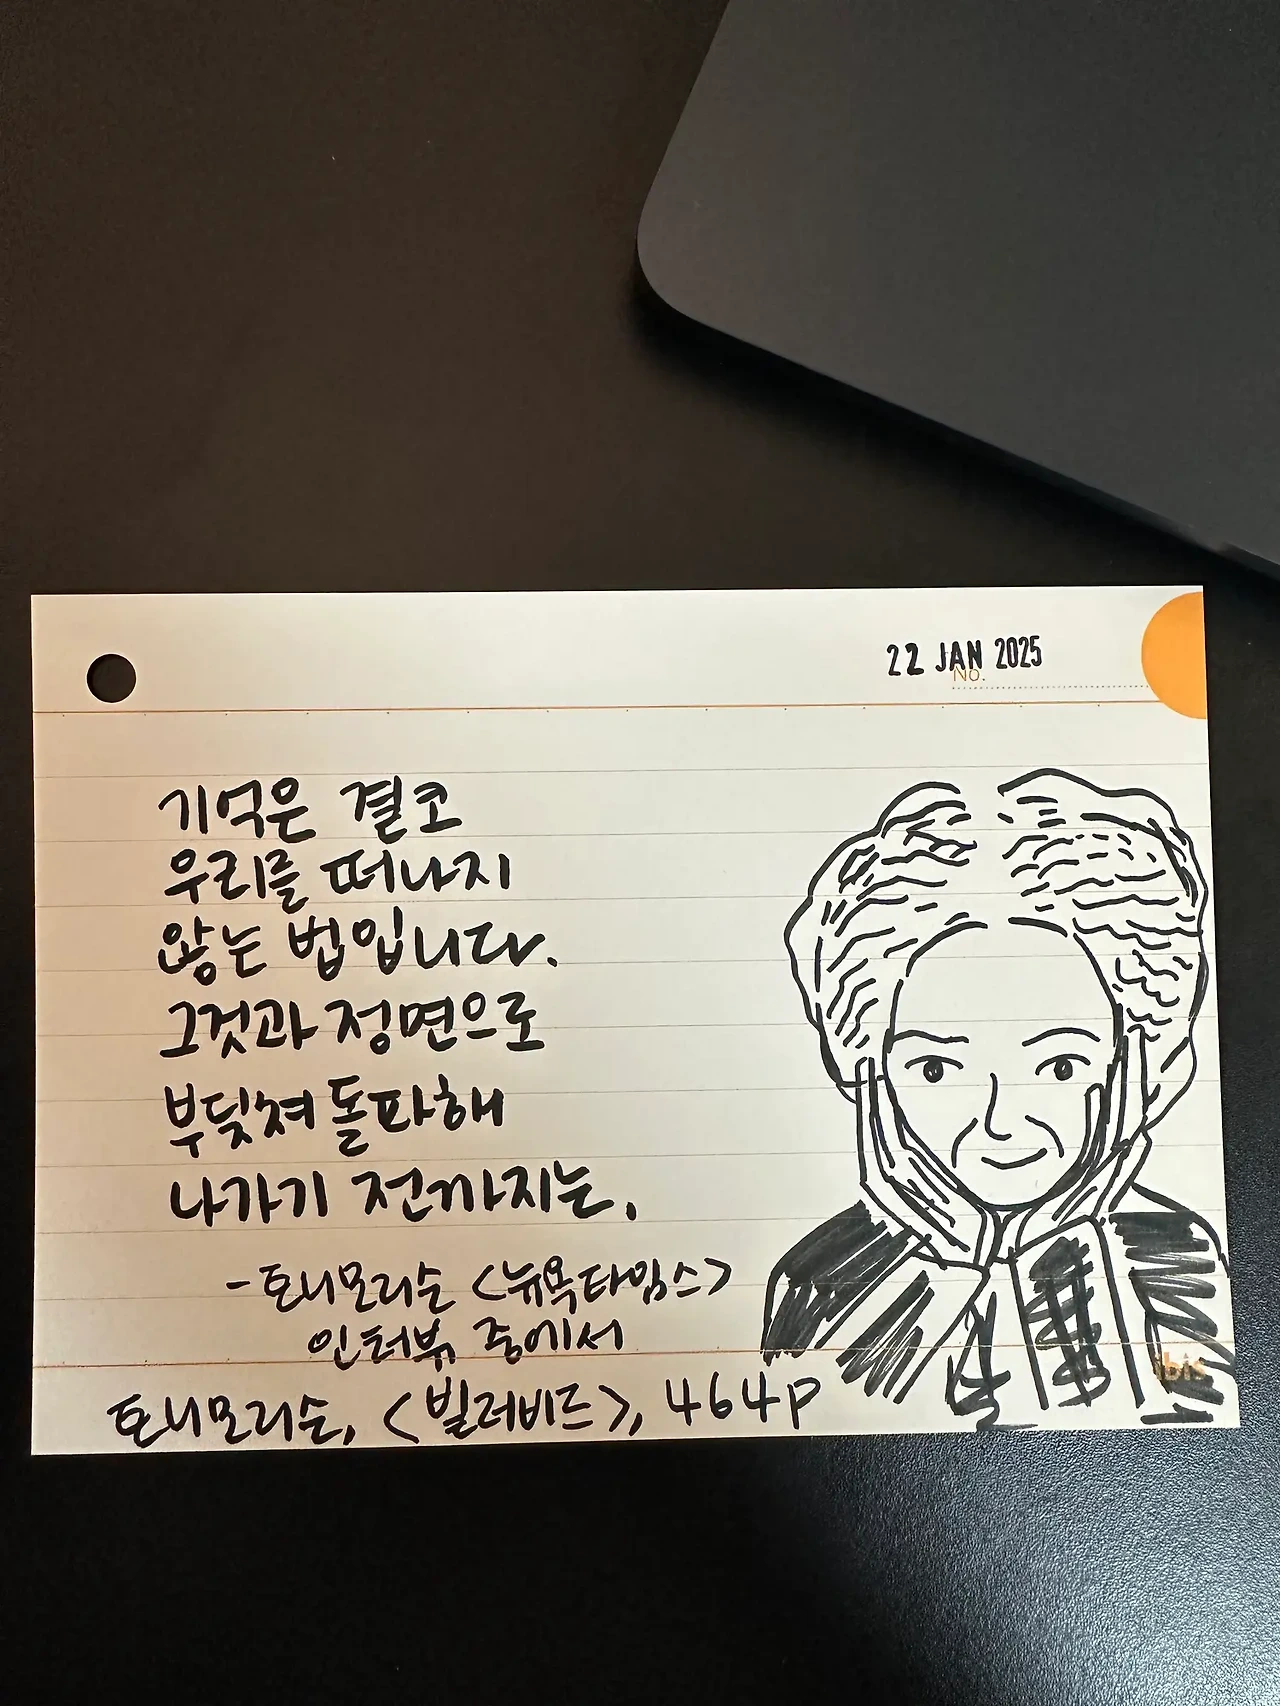 22 JAN 2025
No.
기억은 결코
우리를 떠나지
않는 법입니다.
그것과 정면으로
부딪쳐 돌파해
나가기 전까지는.
-토니모리슨 <뉴욕타임스>
인터뷰 중에서
토니모리슨, <빌러비드>, 464p
ibis